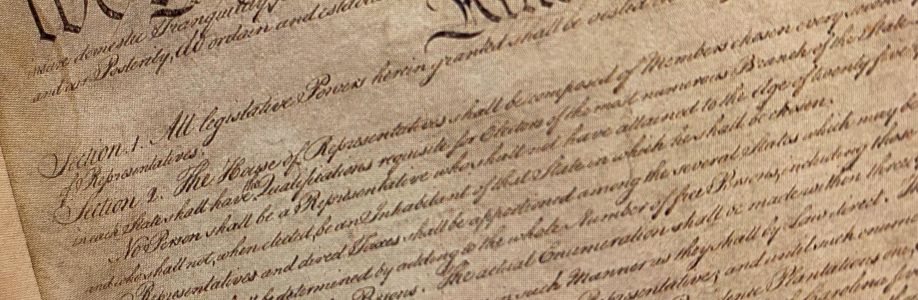 We
insure domestic Tranquility
and our Posterity, do ordain and establish
Section. 1. All legislative Powers herein granted shall be vested
of Representatives.
Section. 2. The House of Representatives shall be composed of Members chosen every second
in each State shall have the Qualifications requisite for Electors of the most numerous Branch of the State
No Person shall be a Representative who shall not have attained to the Age of twenty five
and who shall not, when elected, be an Inhabitant of that State in which he shall be chosen.
Representatives and direct Taxes shall be apportioned among the several States which may be
determined by adding to the whole Number of free Persons, including those
Persons. The actual Enumeration shall be made within three
such Manner as they shall by Law direct.
Representative; and until such enume
Plantations